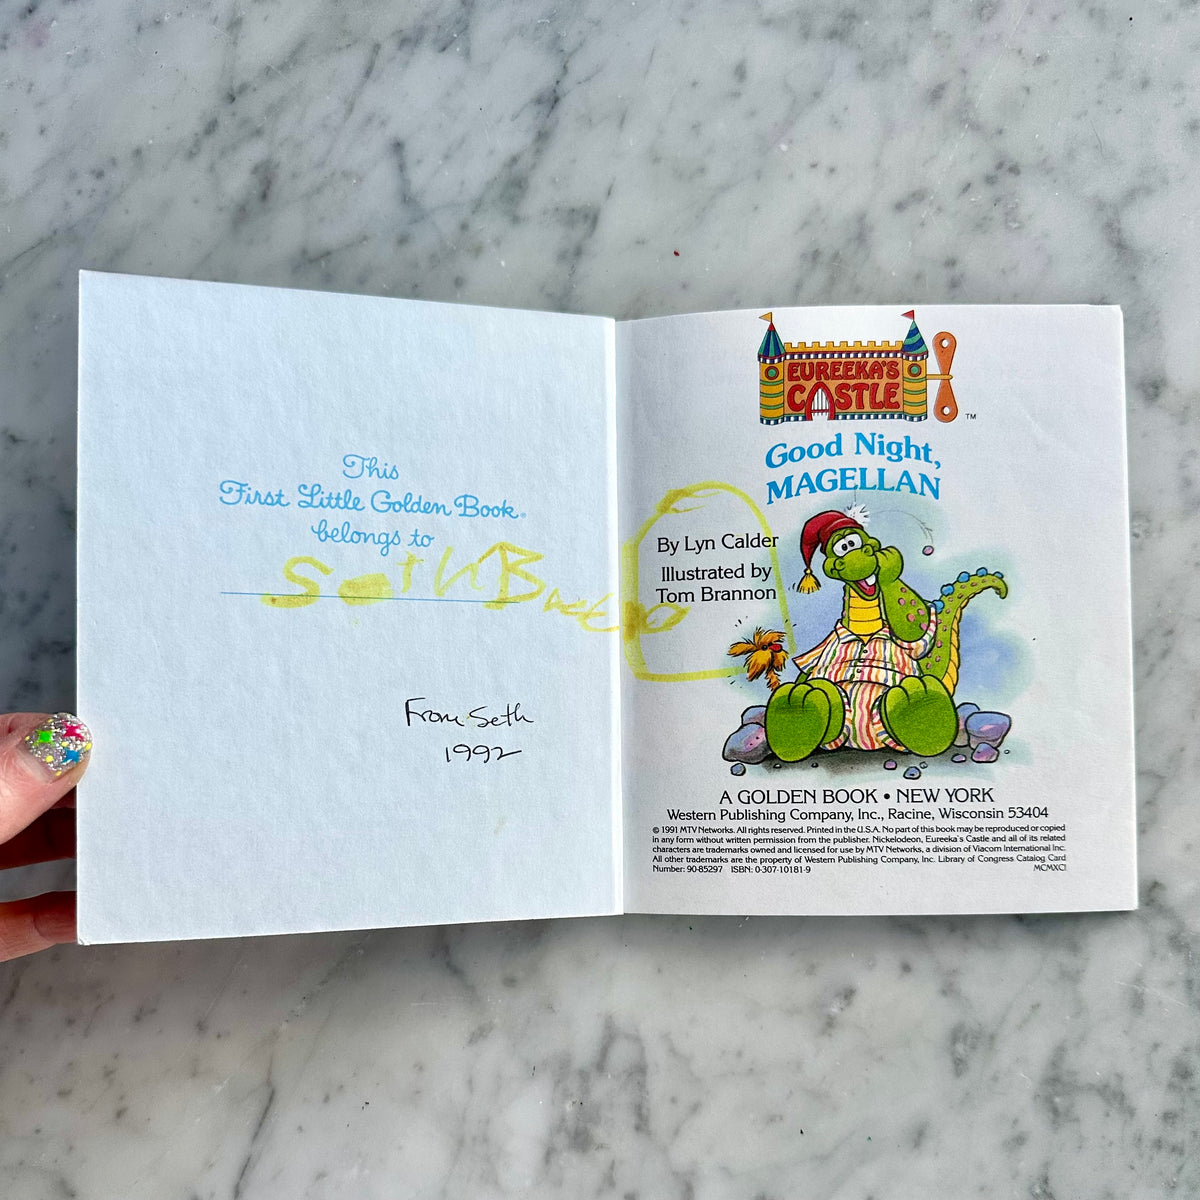 This
First Little Golden Book®
belongs to
Seth
From Seth
1992
EUREEKA'S
CASTLE
TM
Good Night,
MAGELLAN
By Lyn Calder
Illustrated by
Tom Brannon
A GOLDEN BOOK • NEW YORK
Western Publishing Company, Inc., Racine, Wisconsin 53404
© 1991 MTV Networks. All rights reserved. Printed in the U.S.A. No part of this book may be reproduced or copied
in any form without written permission from the publisher. Nickelodeon, Eureeka's Castle and all of its related
characters are trademarks owned and licensed for use by MTV Networks, a division of Viacom International Inc.
All other trademarks are the property of Western Publishing Company, Inc. Library of Congress Catalog Card
Number: 90-85297 ISBN: 0-307-10181-9 MCMXCI